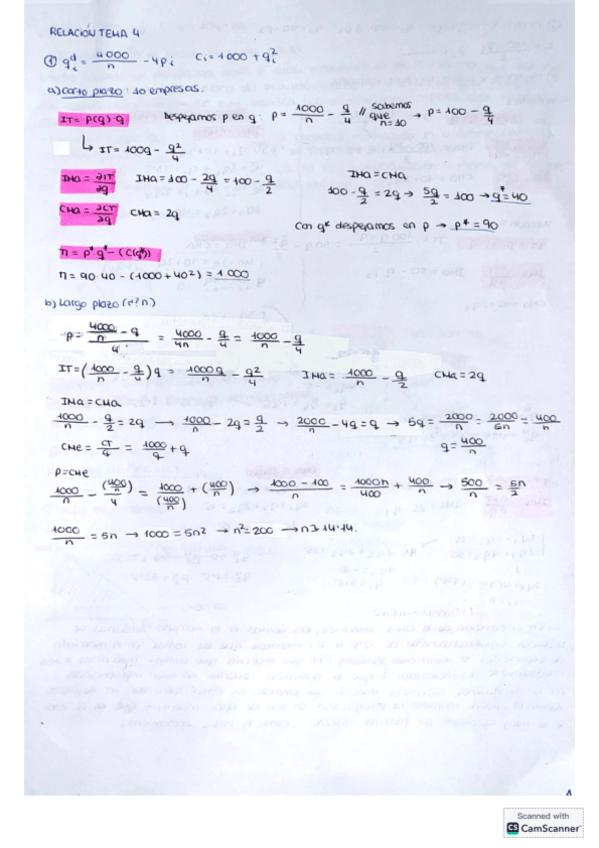 RELACIÓN TEMA 4
① qᵢᵈ = 4000/n - 4pᵢ   Cᵢ = 1000 + qᵢ²
a) corto plazo: 10 empresas.
IT = P(q)·q   Despejamos p en q: p = 1000/n - q/4 // sabemos que n=10 → p = 100 - q/4
↳ IT = 100q - q²/4
IMa = ∂IT/∂q   IMa = 100 - 2q/4 = 100 - q/2   IMa = CMa
100 - q/2 = 2q → 5q/2 = 100 → q* = 40
CMa = ∂CT/∂q   CMa = 2q
Con q* despejamos en p → p* = 90
π = p*q* - (C(q*))
π = 90·40 - (1000 + 40²) = 1000
b) Largo plazo (¿?n)
p = (4000/n - q)/4 = 4000/4n - q/4 = 1000/n - q/4
IT = (1000/n - q/4)q = 1000q/n - q²/4   IMa = 1000/n - q/2   CMa = 2q
IMa = CMa
1000/n - q/2 = 2q → 1000/n - 2q = q/2 → 2000/n - 4q = q → 5q = 2000/n = 2000/5n = 400/n
CMe = CT/q = 1000/q + q   q = 400/n
P = CMe
1000/n - (400/n)/4 = 1000/(400/n) + (400/n) → 1000 - 100/n = 1000n/400 + 400/n → 500/n = 5n/2
1000/n = 5n → 1000 = 5n² → n² = 200 → n = 14'14.
Scanned with
CS CamScanner